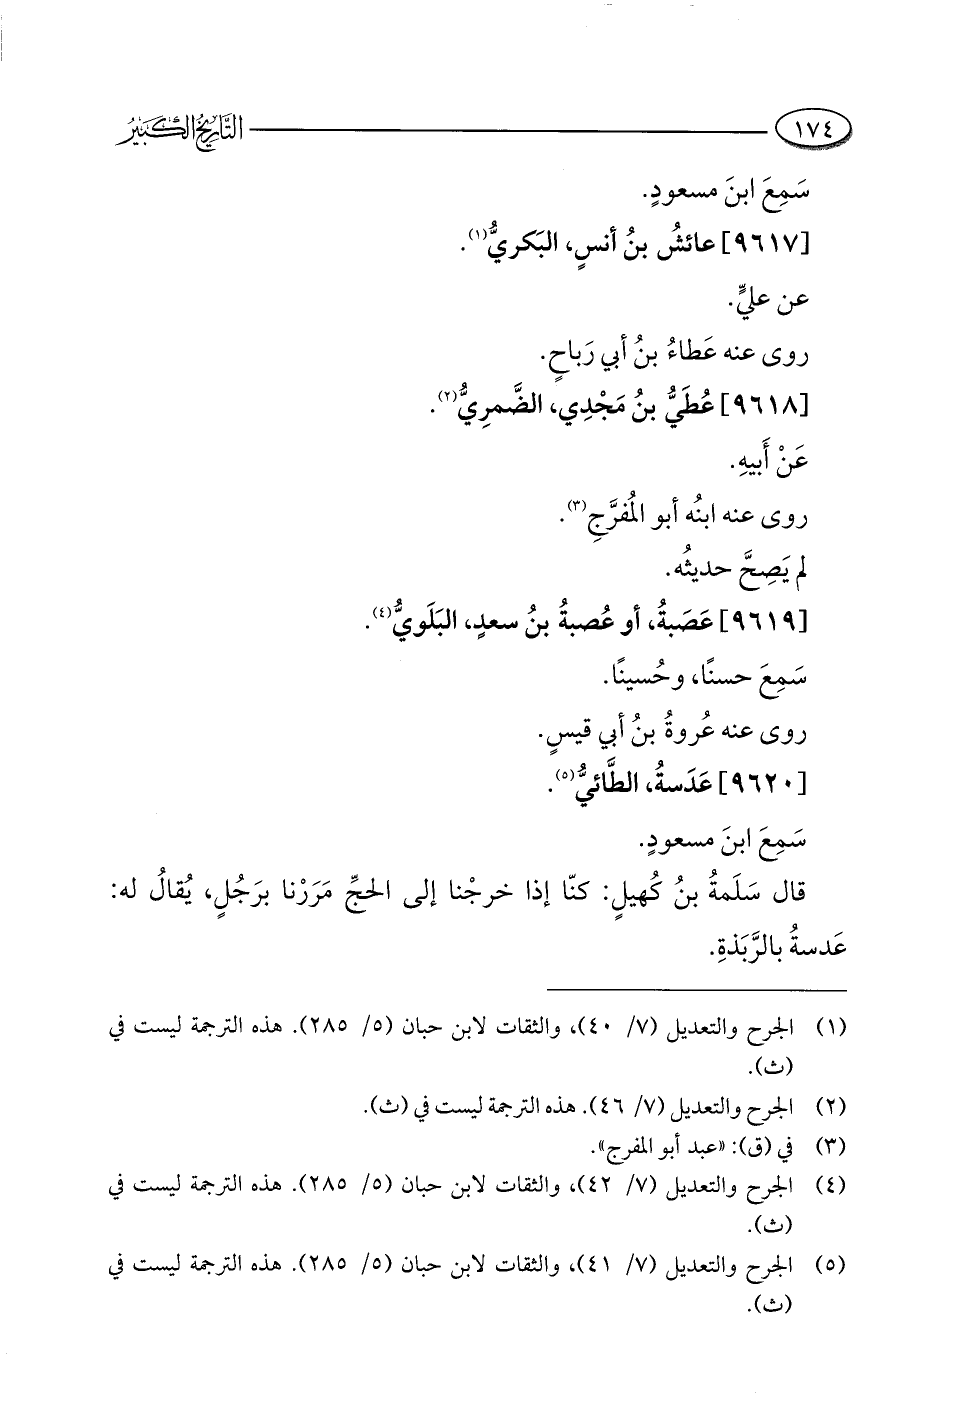 ١٧٤ التَّاريخُ الكَبيرُ
سَمِعَ ابنَ مسعودٍ.
[٩٦١٧] عائشُ بنُ أنسٍ، البَكريُّ(١).
عن عليٍّ.
روى عنه عَطاءُ بنُ أبي رَباحٍ.
[٩٦١٨] عُطَيُّ بنُ مَجْدِي، الضَّمرِيُّ(٢).
عَنْ أَبيهِ.
روى عنه ابنُه أبو المُفرَّجِ(٣).
لم يَصِحَّ حديثُه.
[٩٦١٩] عَصَبةُ، أو عُصبةُ بنُ سعدٍ، البَلَويُّ(٤).
سَمِعَ حسنًا، وحُسينًا.
روى عنه عُروةُ بنُ أبي قيسٍ.
[٩٦٢٠] عَدَسةُ، الطَّائيُّ(٥).
سَمِعَ ابنَ مسعودٍ.
قال سَلَمةُ بنُ كُهيلٍ: كنّا إذا خرجْنا إلى الحجِّ مَرَرْنا برَجُلٍ، يُقالُ له:
عَدسةُ بالرَّبَذةِ.
(١) الجرح والتعديل (٧/ ٤٠)، والثقات لابن حبان (٥/ ٢٨٥). هذه الترجمة ليست في
(ث).
(٢) الجرح والتعديل (٧/ ٤٦). هذه الترجمة ليست في (ث).
(٣) في (ق): «عبد أبو المفرج».
(٤) الجرح والتعديل (٧/ ٤٢)، والثقات لابن حبان (٥/ ٢٨٥). هذه الترجمة ليست في
(ث).
(٥) الجرح والتعديل (٧/ ٤١)، والثقات لابن حبان (٥/ ٢٨٥). هذه الترجمة ليست في
(ث).